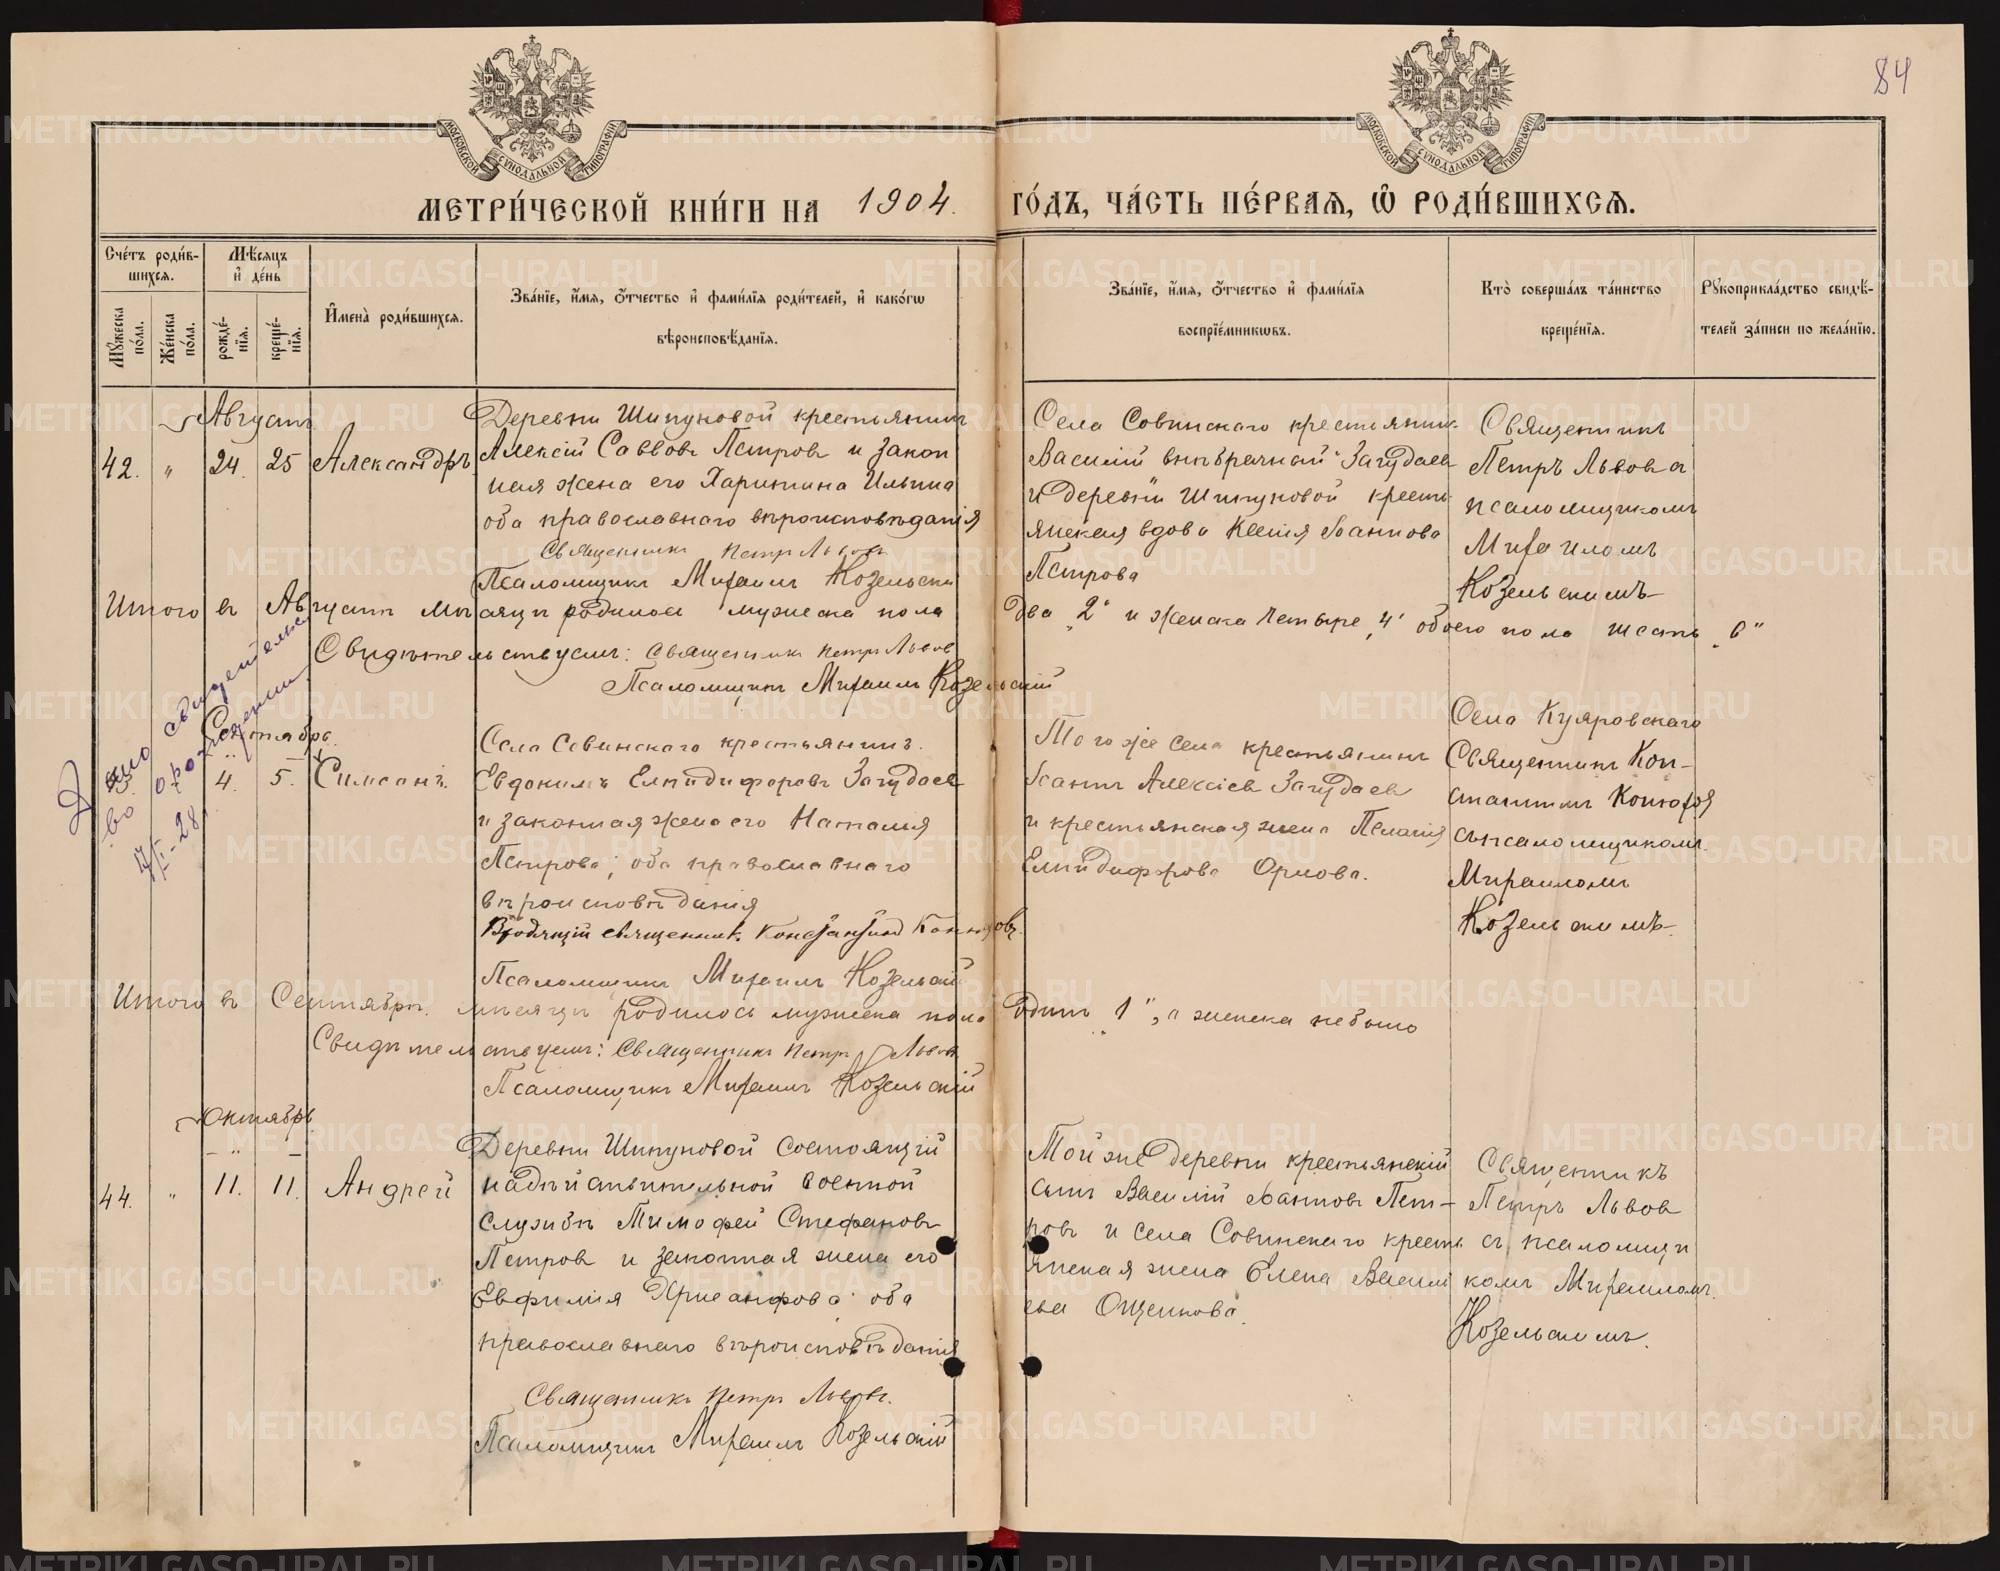 84
МОСКОВСКОЙ СѴНОДАЛЬНОЙ ТИПОГРАФІИ
МОСКОВСКОЙ СѴНОДАЛЬНОЙ ТИПОГРАФІИ
МЕТРИ́ЧЕСКОЙ КНИ́ГИ НА 1904. ГО́ДЪ, ЧА́СТЬ ПЕ́РВАѦ, Ѽ РОДИ́ВШИХСѦ.
Сче́тъ роди́в-
шихсѧ.
Мѣ́сѧцъ
и҆ де́нь
Мꙋ́жеска по́ла.
Же́нска по́ла.
рожде́-нїѧ.
креще́-нїѧ.
И҆мена̀ роди́вшихсѧ.
Зва́нїе, и҆́мѧ, ѻ҆́тчество и҆ фами́лїѧ роди́телей, и҆ како́гѡ
вѣроисповѣ́данїѧ.
Зва́нїе, и҆́мѧ, ѻ҆́тчество и҆ фами́лїѧ
воспрїе́мникѡвъ.
Кто̀ соверша́лъ та́инство
креще́нїѧ.
Рꙋкоприкла́дство свидѣ́-
телей за́писи по жела́нїю.
Августъ
42. " 24. 25 Александръ
Деревни Шипуновой крестьянинъ
Алексій Саввовъ Петровъ и закон
ная жена его Харитина Ильина
оба православнаго вѣроисповѣданія
Священникъ Петръ Львовъ
Псаломщикъ Михаилъ Козельскій
Села Совинскаго крестьянин
Василій внѣбрачный Загудаев
и деревни Шипуновой кресть
янская вдова Ксенія Іоаннова
Петрова
Священникъ
Петръ Львовъ
псаломщикомъ
Михаиломъ
Козельскимъ
Итого въ Августѣ мѣсяцѣ родилось мужеска пола два "2" и женска четыре "4" обоего пола шесть "6"
Свидѣтельствуемъ: Священникъ Петръ Львов
Псаломщикъ Михаилъ Козельскій
свидетельст
во о рождении
17/I-28
Сентябрь
4. 5. Симеонъ.
Села Совинскаго крестьянинъ
Евдокимъ Елпидифоровъ Загудаев
и законная жена его Наталія
Петрова; оба православнаго
вѣроисповѣданія
священник Константин Конюхов
Псаломщикъ Михаилъ Козельскій
Того же села крестьянинъ
Іоаннъ Алексіев Загудаев
и крестьянская жена Пелагія
Елпидифорова Орлова.
Села Куяровскаго
Священникъ Кон-
стантинъ Конюхов
съ псаломщикомъ
Михаиломъ
Козельскимъ
Итого въ Сентябрѣ мѣсяцѣ родилось мужеска пола один "1", а женска не было
Свидѣтельствуемъ: Священникъ Петръ Львов
Псаломщикъ Михаилъ Козельскій
Октябрь
44. " 11. 11. Андрей
Деревни Шипуновой состоящій
на дѣйствительной военной
службѣ Тимофей Стефановъ
Петров и законная жена его
Евфимія Хрисанфова оба
православнаго вѣроисповѣданія
Священникъ Петръ Львовъ.
Псаломщикъ Михаилъ Козельскій
Той же деревни крестьянскій
сынъ Василій Іоанновъ Пет-
ровъ и села Совинскаго кресть
янская жена Елена Василі
ева Ощепкова.
Священникъ
Петръ Львов
съ псаломщи
комъ Михаиломъ
Козельскимъ.
METRIKI.GASO-URAL.RU